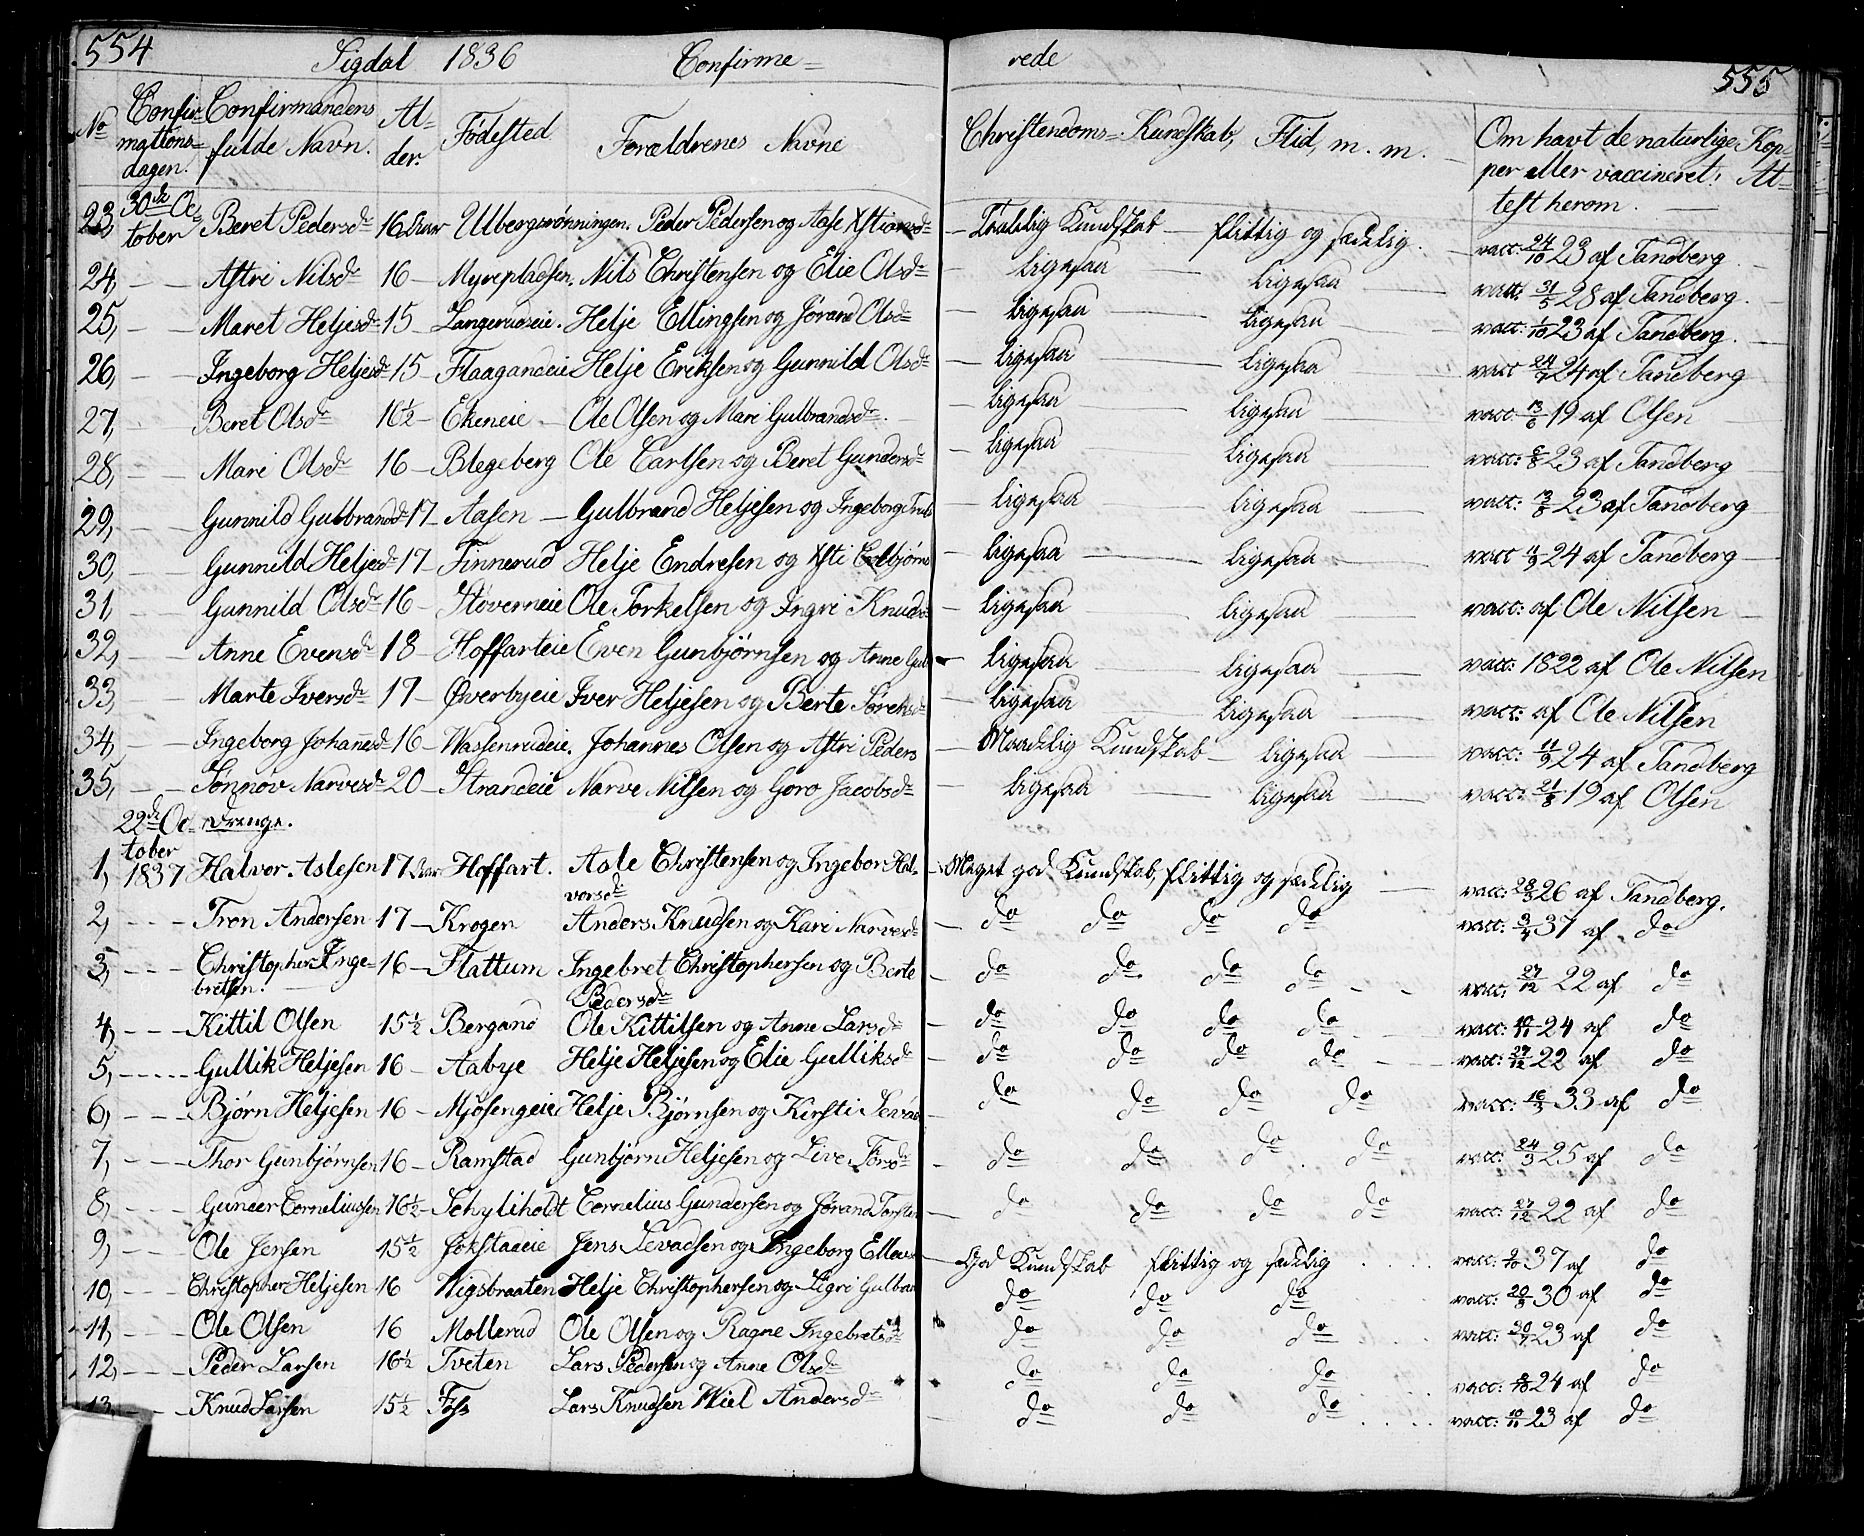 554 Sigdal 1836 Confirme= rede 555
No Confirmations=dagen. Confirmandens fulde Navn. Al=der. Fødested Forældrenes Navne Christendoms=Kundskab, Flid, m. m. Om havt de naturlige Kopper eller vaccineret! Attest herom.
23, 30de October Beret Pedersdr 16 Aar Ulbergsrønningen. Peder Pedersen og Aase Xstiansdr Taalelig Kundskab flittig og sædelig. vacc: 24/10 23 af Tandberg
24, Astri Nilsdr 16 Myrepladsen. Nils Christensen og Elie Olsdr ligesaa ligesaa vacc: 31/5 28 af Tandberg.
25, Maret Heljesdr 15 Langerudeie. Helje Ellingsen og Jørand Olsdr ligesaa ligesaa vacc: 1/10 23 af Tandberg.
26, Ingeborg Heljesdr 15 Flaagandeie Helje Eriksen og Gunnild Olsdr ligesaa ligesaa vacc 24/7 24 af Tandberg
27, Beret Olsdr 16½ Ekeneie Ole Olsen og Mari Gulbrandsdr. ligesaa ligesaa vacc 13/6 19 af Olsen
28, Mari Olsdr 16 Blegeberg Ole Carlsen og Beret Gundersdr ligesaa ligesaa vacc: 8/8 23 af Tandberg
29, Gunnild Gulbrandsdr 17 Aasen Gulbrand Heljesen og Ingeborg Truls ligesaa ligesaa vacc: 13/8 23 af Tandberg
30, Gunnild Heljesdr 17 Finnerud Helje Endresen og Xsti Esbjørns ligesaa ligesaa vacc 11/9 24 af Tandberg
31, Gunnild Olsdr 16 Støverneie Ole Torkelsen og Ingri Knudsdr ligesaa ligesaa vacc: af Ole Nilsen
32, Anne Evensdr 18 Hoffarteie Even Gunbjørnsen og Anne Gul ligesaa ligesaa vacc: 1822 af Ole Nilsen
33, Marte Iversdr 17 Øverbyeie Iver Heljesen og Berte Sørensdr ligesaa ligesaa vacc: af Ole Nilsen
34, Ingeborg Johanesdr 16 Wassenrudeie. Johannes Olsen og Astri Peders Maadelig Kundskab ligesaa vacc: 11/9 24 af Tandberg
35, Sønnøv Narvesdr 20 Strandeie Narve Nilsen og Goro Jacobsdr ligesaa ligesaa vacc: 21/8 19 af Olsen
22de October 1837 Drenge.
1, Halvor Aslesen 17 Aar Hoffart. Asle Christensen og Ingebor Hal=vorsdr Meget god Kundskab, flittig og sædelig vacc: 28/3 26 af Tandberg.
2, Tron Andersen 17 Krogen Anders Knudsen og Kari Narvesdr do do do do vacc: 9/4 37 af do
3, Christopher Inge=bretsen. 16 Flattum Ingebret Christophersen og Berte Pedersdr do do do do vacc: 27/12 22 af do
4, Kittil Olsen 15½ Bergand Ole Kittilsen og Anne Larsdr do do do do vacc: 10/11 24 af do
5, Gullik Heljesen 16 Aabye Helje Heljesen og Elie Gulliksdr do do do do vacc: 27/12 22 af do
6, Bjørn Heljesen 16 Mjøsengeie Helje Bjørnsen og Kirsti Sevad do do do do vacc: 16/3 33 af do
7, Thor Gunbjørnsen 16 Ramstad Gunbjørn Heljesen og Live Torsdr do do do do vacc: 24/3 25 af do
8, Gunder Corneliussen 16½ Schyliholdt Cornelius Gundersen og Jørand Torsten do do do do vacc: 27/12 22 af do
9, Ole Jensen 15½ Jokstadeie Jens Sevadsen og Ingeborg Ellevs God Kundskab flittig og sædelig vacc: 9/10 37 af do
10, Christopher Heljesen 16 Wigsbraaten Helje Christophersen og Sigri Gulbran do do do vacc: 20/8 30 af do
11, Ole Olsen 16 Mollerud Ole Olsen og Ragne Ingebretsdr do do do vacc: 30/7 23 af do
12, Peder Larsen 16½ Tveten Lars Pedersen og Anne Olsdr do do do vacc: 8/10 24 af do
13, Knud Larsen 15½ Foss Lars Knudsen Kiel Andersdr do do do vacc: 10/11 23 af do